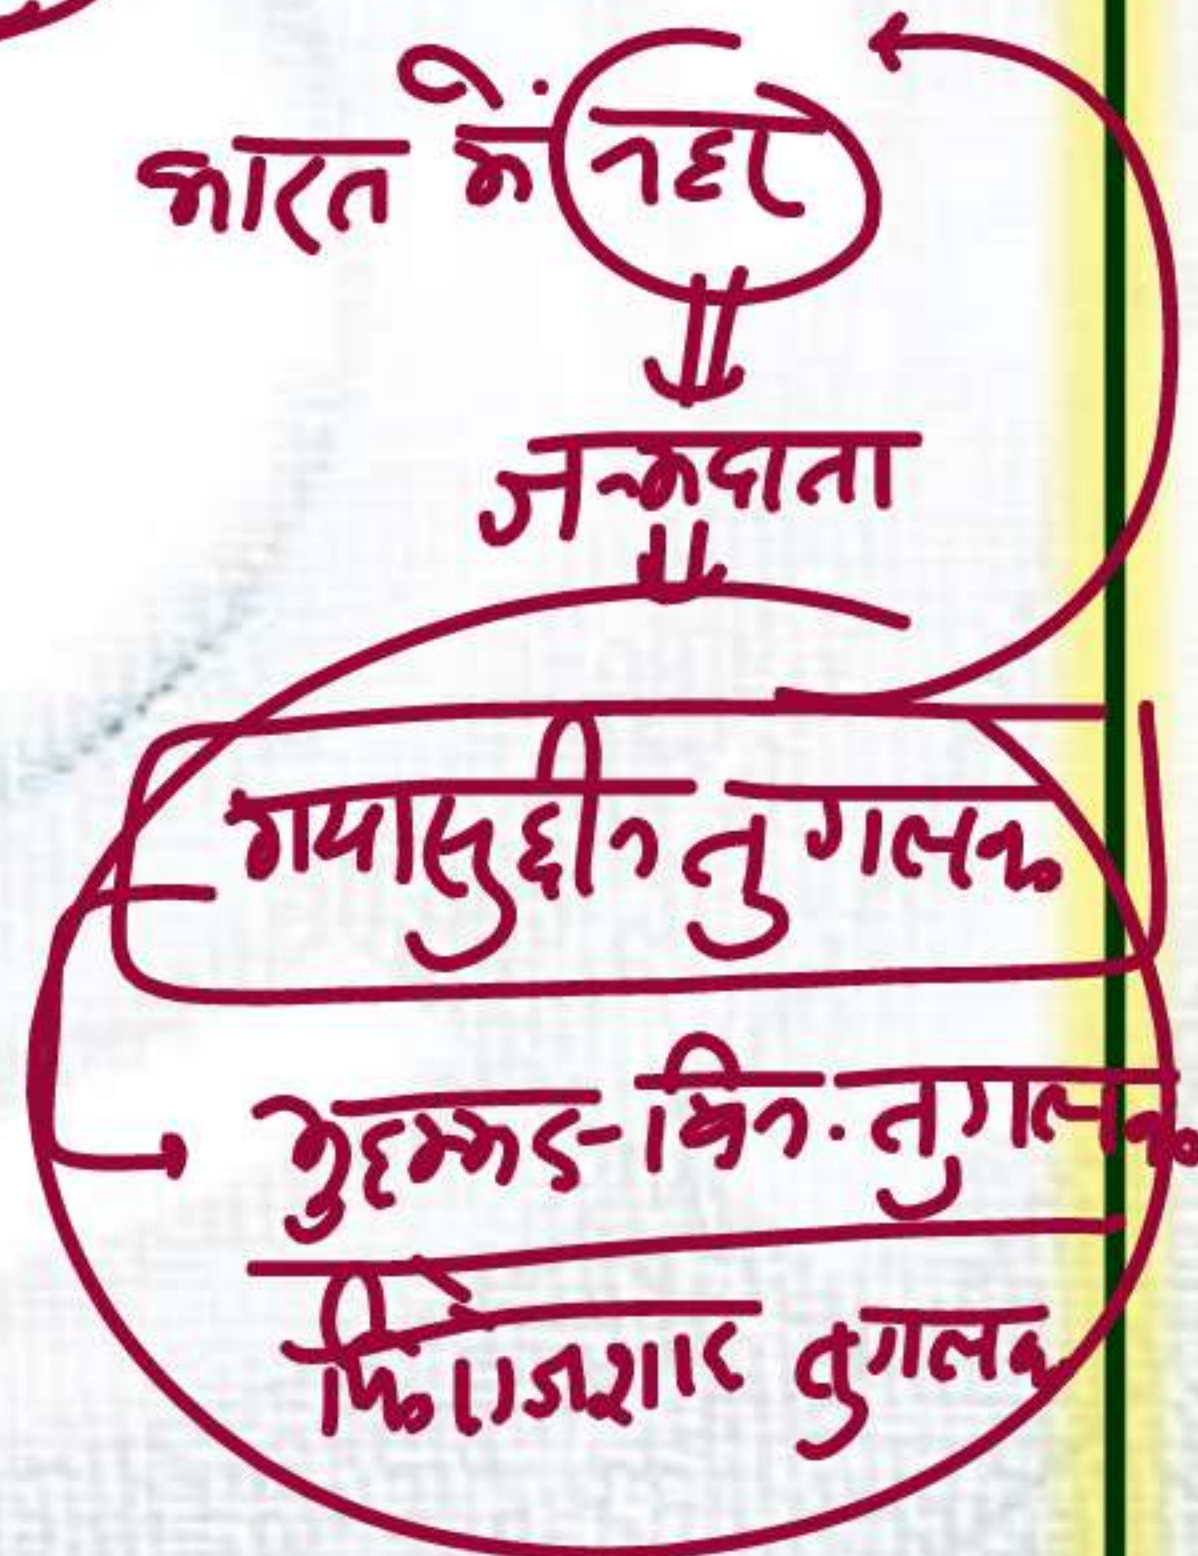 भारत में नहर
जन्मदाता
गयासुद्दीन तुगलक
मुहम्मद-बिन-तुगलक
फिरोजशाह तुगलक